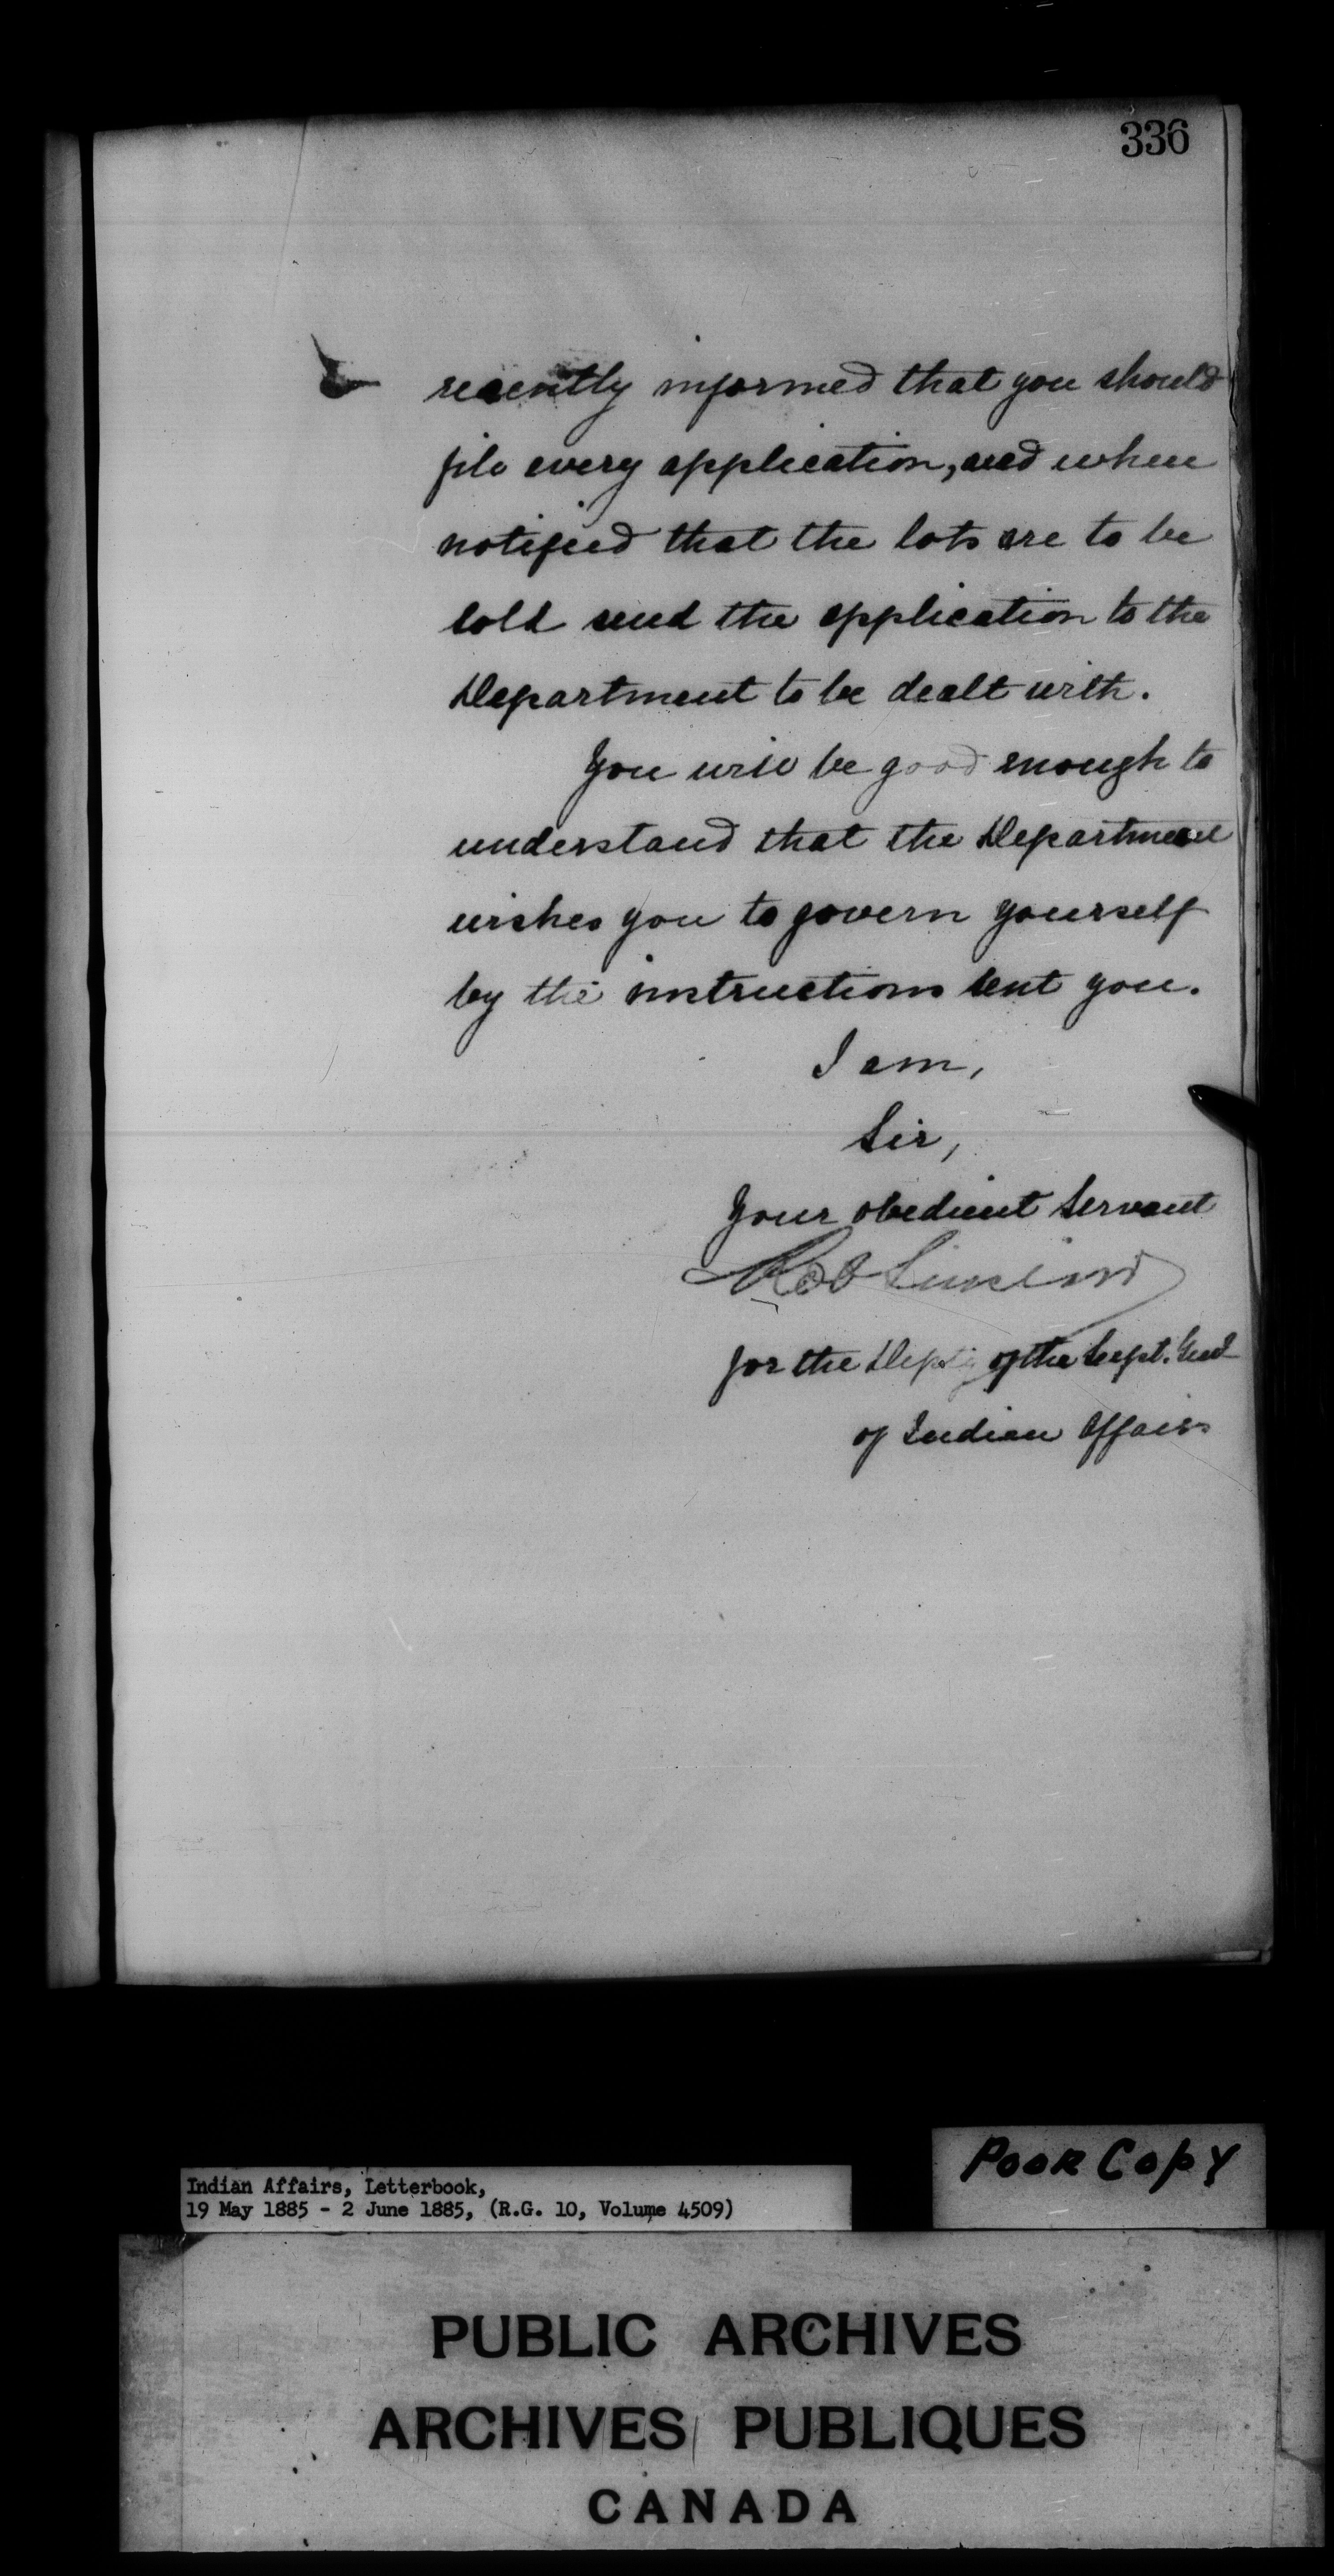 336
recently informed that you should
file every application, and when
notified that the lots are to be
sold send the application to the
Department to be dealt with.
You will be good enough to
understand that the Department
wishes you to govern yourself
by the instructions sent you.
I am,
Sir,
Your obedient Servant
for the Depty of the Supt. Genl
of Indian Affairs
Poor Copy
Indian Affairs, Letterbook,
19 May 1885 - 2 June 1885, (R.G. 10, Volume 4509)
PUBLIC ARCHIVES
ARCHIVES PUBLIQUES
CANADA